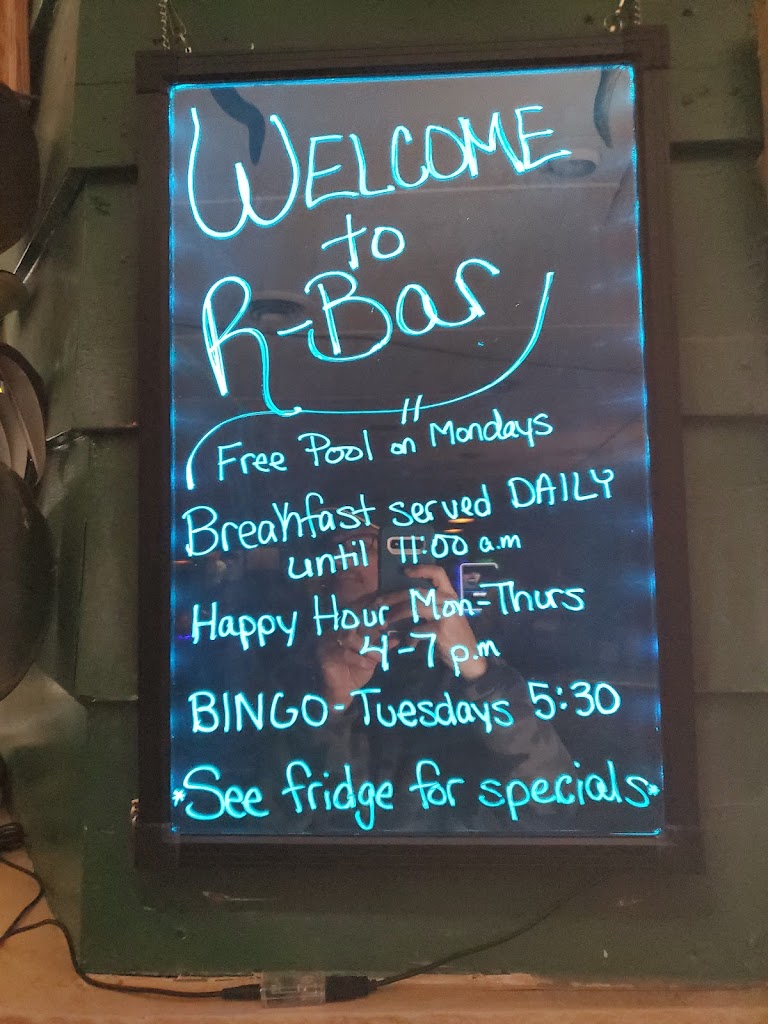 WELCOME
to
R-Bar
Free Pool on Mondays
Breakfast served DAILY
until 11:00 a.m
Happy Hour Mon-Thurs
4-7 p.m
BINGO-Tuesdays 5:30
*See fridge for specials*